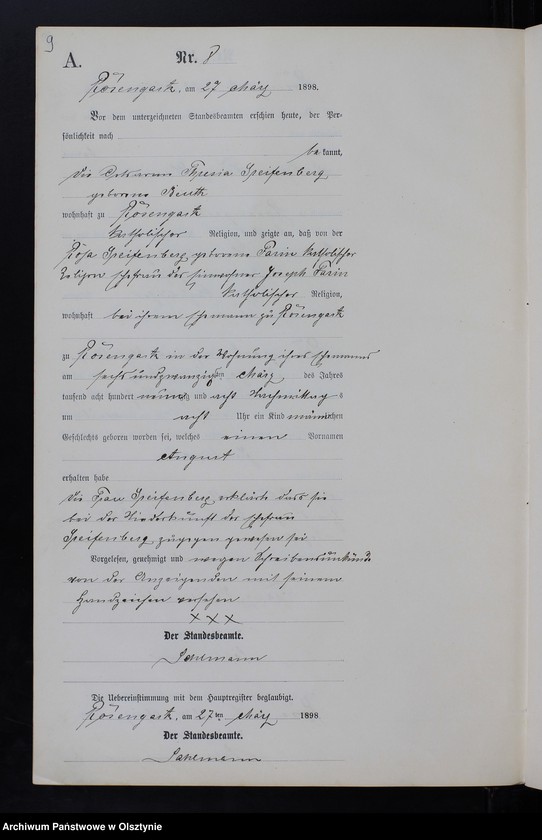 9
A.
Nr. 8
Rosengart, am 27 März 1898.
Vor dem unterzeichneten Standesbeamten erschien heute, der Per-
sönlichkeit nach
bekannt,
die Theresia Preifenberg
geborene Reuth
wohnhaft zu Rosengart
katholischer Religion, und zeigte an, daß von der
Rosa Preifenberg geborene Parin katholischer
Religion Ehefrau des Einwohner Joseph Parin
katholischer Religion,
wohnhaft bei ihrem Ehemann zu Rosengart
zu Rosengart in der Wohnung ihres Ehemanns
am sechsundzwanzigsten März des Jahres
tausend acht hundert neunzig und acht Nachmittags
um acht Uhr ein Kind männlichen
Geschlechts geboren worden sei, welches einen Vornamen
August
erhalten habe
die Frau Preifenberg erklärte dass sie
bei der Niederkunft der Ehefrau
Preifenberg zugegen gewesen sei
Vorgelesen, genehmigt und wegen Schreibensunkunde
von der Anzeigenden mit seinem
Handzeichen versehen
x x x
Der Standesbeamte.
Sahlmann
Die Uebereinstimmung mit dem Hauptregister beglaubigt.
Rosengart, am 27ten März 1898
Der Standesbeamte.
Sahlmann
Archiwum Państwowe w Olsztynie